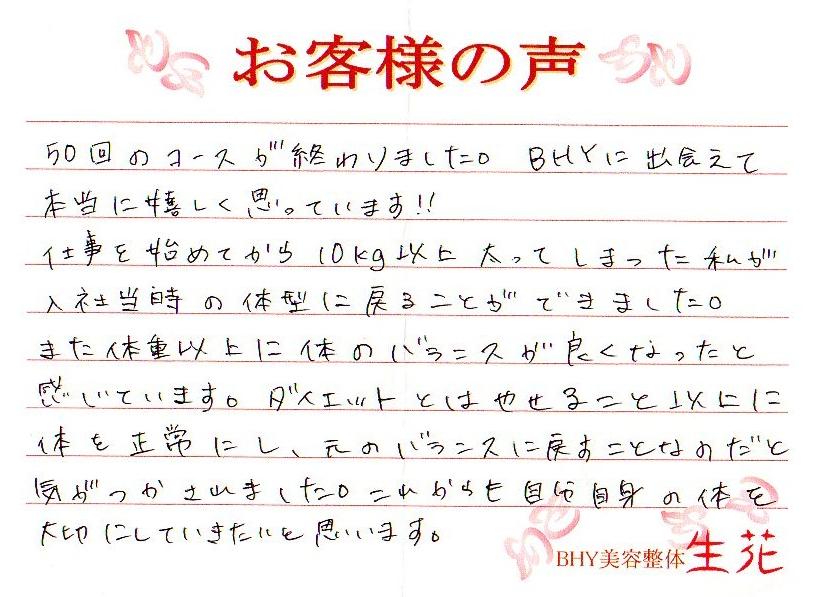 お客様の声
50回のコースが終わりました。BHYに出会えて
本当に嬉しく思っています!!
仕事を始めてから10kg以上太ってしまった私が
入社当時の体型に戻ることができました。
また体重以上に体のバランスが良くなったと
感じています。ダイエットとはやせること以上に
体を正常にし、元のバランスに戻すことなのだと
気がつかされました。これからも自分自身の体を
大切にしていきたいと思います。
BHY美容整体 生花